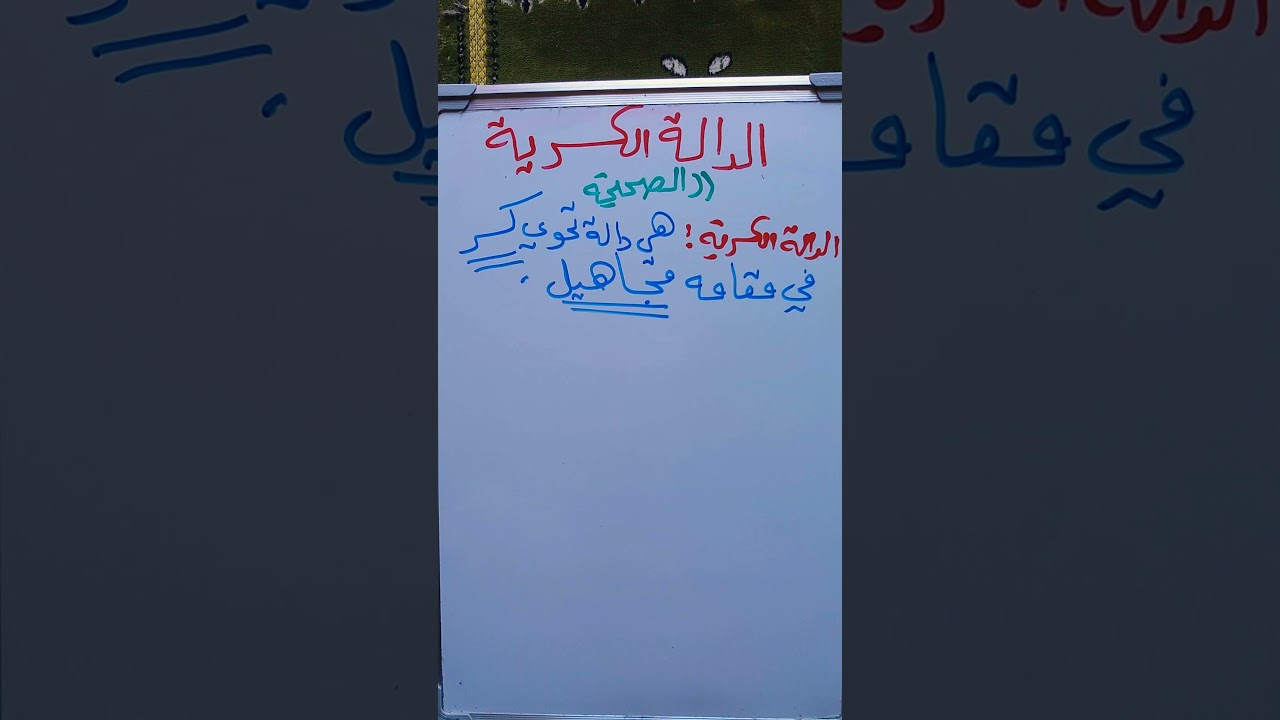 الدالة الكسرية
(( الصحيحة
الدالة الكسرية: هي دالة تحوي كسر
في مقامه مجاهيل.